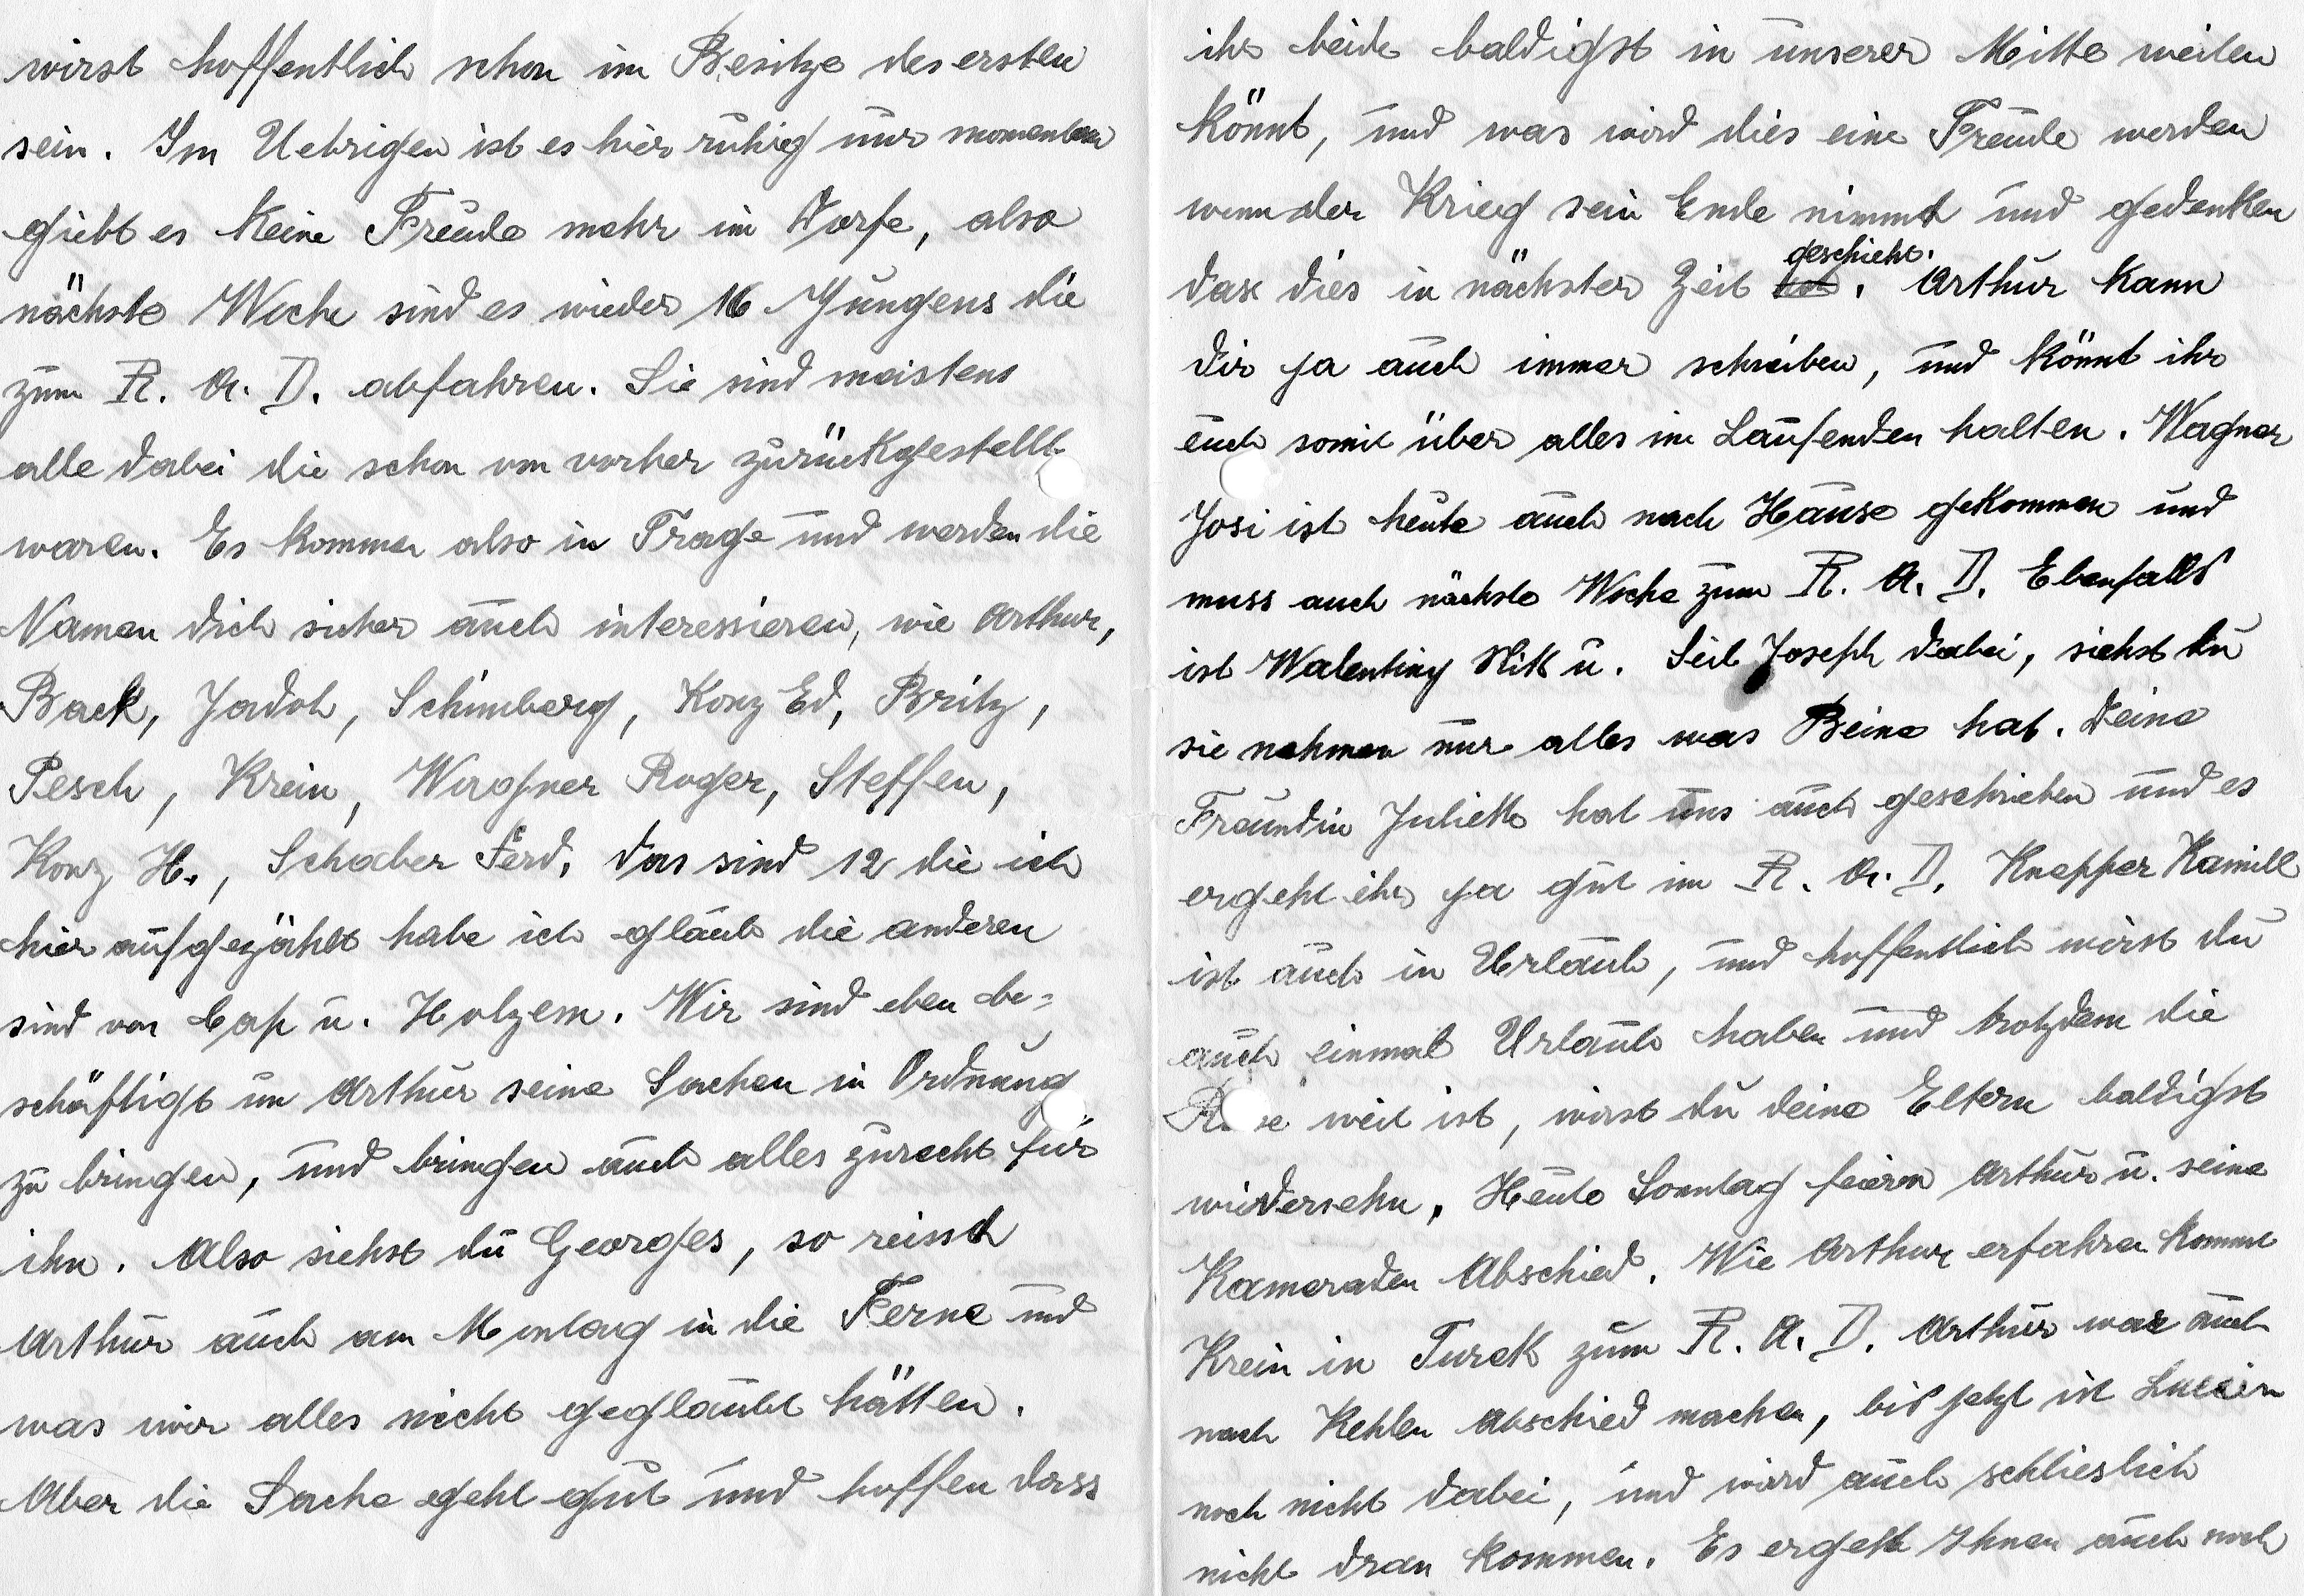 wirst hoffentlich schon im Besitze des ersten
sein. Im Uebrigen ist es hier ruhig nur momentan
giebt es keine Freude mehr im Dorfe, also
nächste Woche sind es wieder 16 Jungens die
zum R. A. D. abfahren. Sie sind meistens
alle dabei die schon von vorher zurückgestellt
waren. Es kommen also in Frage und werden die
Namen dich sicher auch interessieren, wie Arthur,
Back, Jadoh, Schimberg, Konz Ed, Britz,
Pesch, Krein, Wagner Roger, Steffen,
Konz H., Schaber Ferd, das sind 12 die ich
hier aufgezählt habe ich glaub die anderen
sind von Cap u. Holzem. Wir sind eben be=
schäftigt um Arthur seine Sachen in Ordnung
zu bringen, und bringen auch alles zurecht für
ihn. Also siehst du Georges, so reisst
Arthur auch am Montag in die Ferne und
was wir alles nicht geglaubt hätten.
Aber die Sache geht gut und hoffen dass
ihr beide baldigst in unserer Mitte weilen
könnt, und was wird dies eine Freude werden
wenn der Krieg sein Ende nimmt und gedenken
das dies in nächster Zeit geschieht. Arthur kann
dir ja auch immer schreiben, und könnt ihr
euch somit über alles im Laufenden halten. Wagner
Josi ist heute auch nach Hause gekommen und
muss auch nächste Woche zum R. A. D. Ebenfalls
ist Walentiny Nik u. Seil Joseph dabei, siehst du
sie nehmen nur alles was Beine hat. Deine
Freundin Juliette hat uns auch geschrieben und es
ergeht ihr ja gut im R. A. D. Knepper Kamill
ist auch in Urlaub, und hoffentlich wirst du
auch einmal Urlaub haben und trotzdem die
weit ist, wirst du deine Eltern baldigst
wiedersehn. Heute Sonntag feiern Arthur u. seine
Kameraden Abschied. Wie Arthur erfahren kommt
Krein in Turek zum R. A. D. Arthur war auch
nach Kehlen Abschied machen, bis jetzt ist Lucien
noch nicht dabei, und wird auch schlieslich
nicht dran kommen. Es ergeht Ihnen auch noch